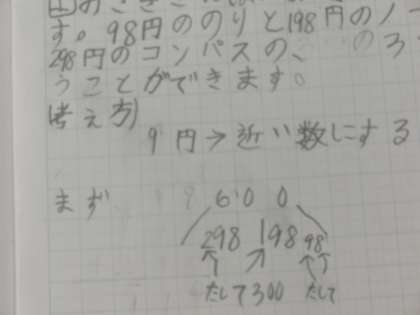 す。98円ののりと198円のノー
298円のコンパスの、のろ
うことができます。
(考え方)
9円→近い数にする
まず 600
298 198 98
たして300 たして